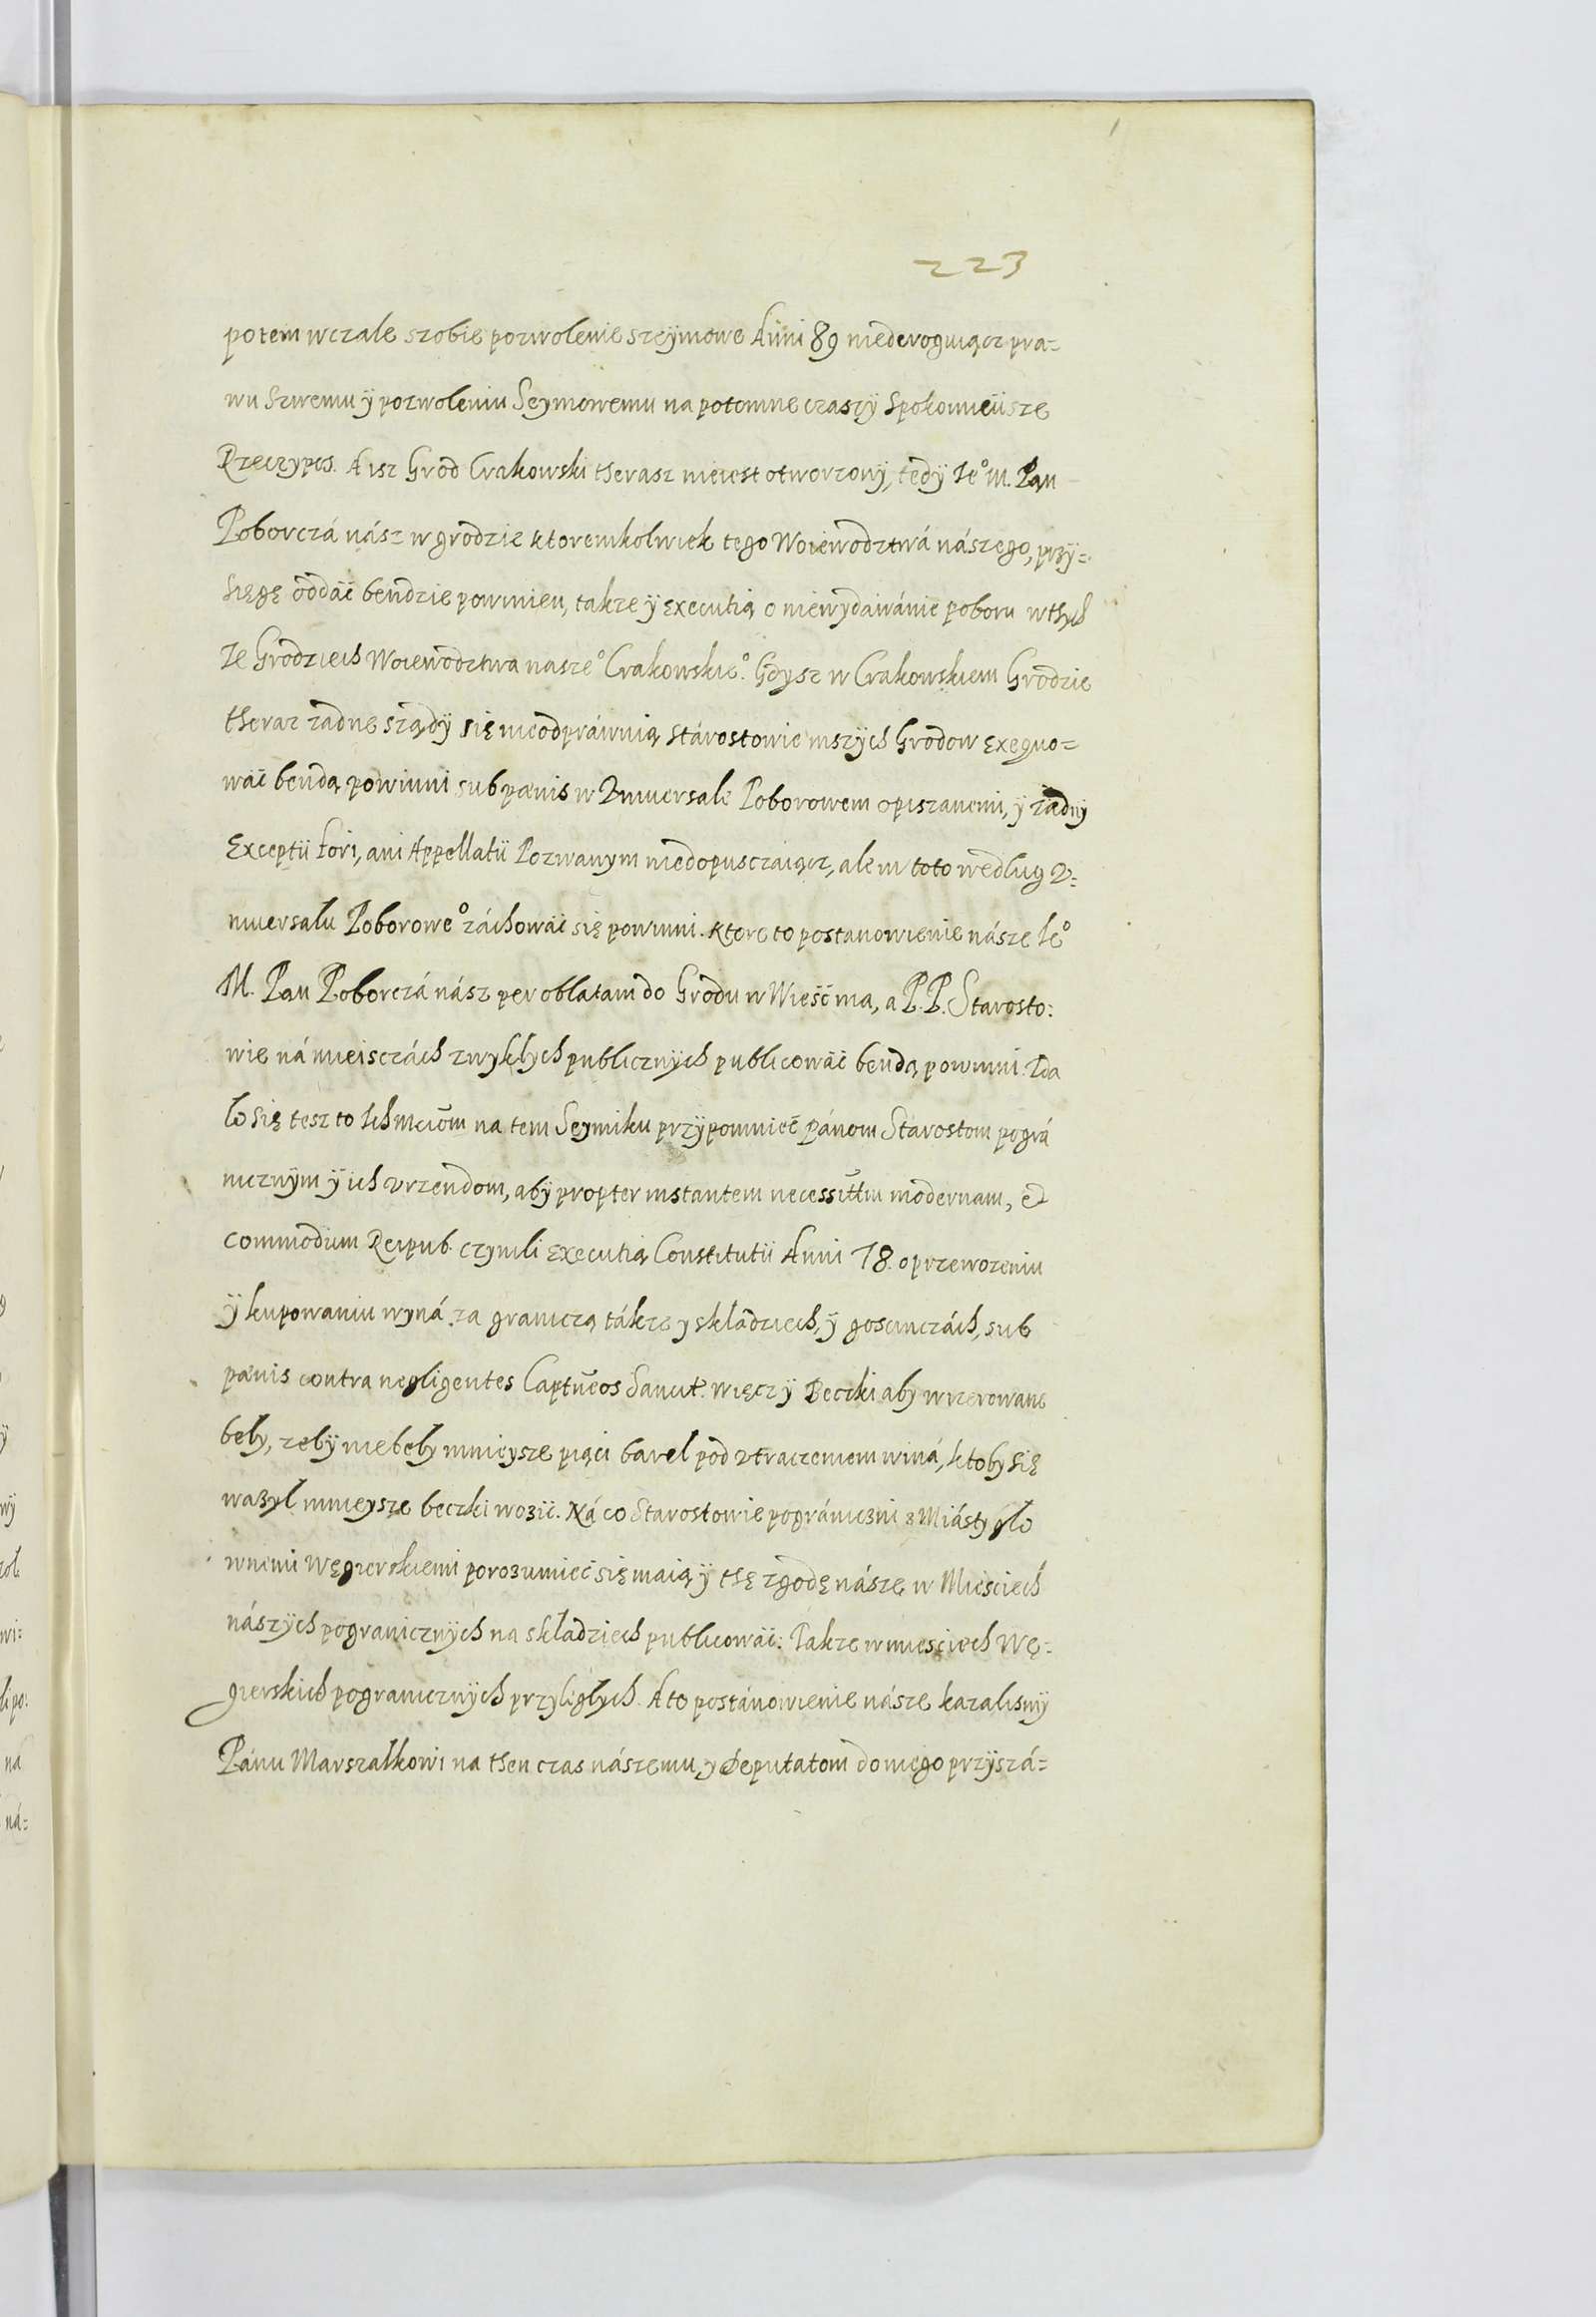 223
potem wczale szobie pozwolenie szeÿmowe Anni 89 niederoguiącz pra=
wu szwemu ÿ pozwoleniu Seymowemu na potomne czaszÿ spokoinieisze
Rzeczypos. A isz Grod Crakowski therasz nieiest otworzony, tedÿ Ie° M. Pan
Poborczá nász w grodzie ktoremkolwiek tego Woiewodztwá nászego, przÿ=
sięgę oddać bendzie powinien, takze ÿ executią o niewydawánie poboru wthych
ze Grodziech Woiewodztwa nasze° Crakowskie°. Gdysz w Crakowskiem Grodzie
theraz zadne sządÿ się nieodpráwuią stárostowie inszÿch Grodow exequo=
wać bendą powinni sub pœnis w Uniuersale Poborowem opiszanemi, ÿ żadnÿ
Exceptii fori, ani Appellatii Pozwanym niedopusczaiącz, ale in toto według U=
niuersału Poborowe° záchowáć się powinni. Ktore to postanowienie násze Ie°
M. Pan Poborczá nász per oblatam do Grodu wnieść ma, a P.P. Starosto:
wie ná mieisczách zwykłych publicznÿch publicowáć bendą powinni. Zda
ło się tesz to Ichmciom na tem Seymiku przÿpomnieć Pánom Starostom pográ
nicznÿm ÿ ich urzendom, abÿ propter instantem necessittm modernam, et
commodum Reipub. czynili executią Constitutii Anni 78. o przewozeniu
ÿ kupowaniu winá za graniczą tákze y składziech, ÿ gosczinczách, sub
pœnis contra negligentes Captueos sancit. więcz ÿ Beczki aby wrzerowane
beły, zebÿ niebeły mnieysze piąci barel pod utraczeniem winá, ktoby się
ważył mnieysze beczki wozić. Ná co Starostowie pográniczni z Miásty gło
wnemi Węgierskiemi porozumieć się maią ÿ thę zgodę násze w Miesciech
nászÿch pogranicznÿch na składziech publicowáć: Takze w miesciech Wę=
gierskich pogranicznÿch przyległych. A to postánowienie násze kazalismÿ
Pánu Marszałkowi na then czas nászemu, y Deputatom do niego przyszá=